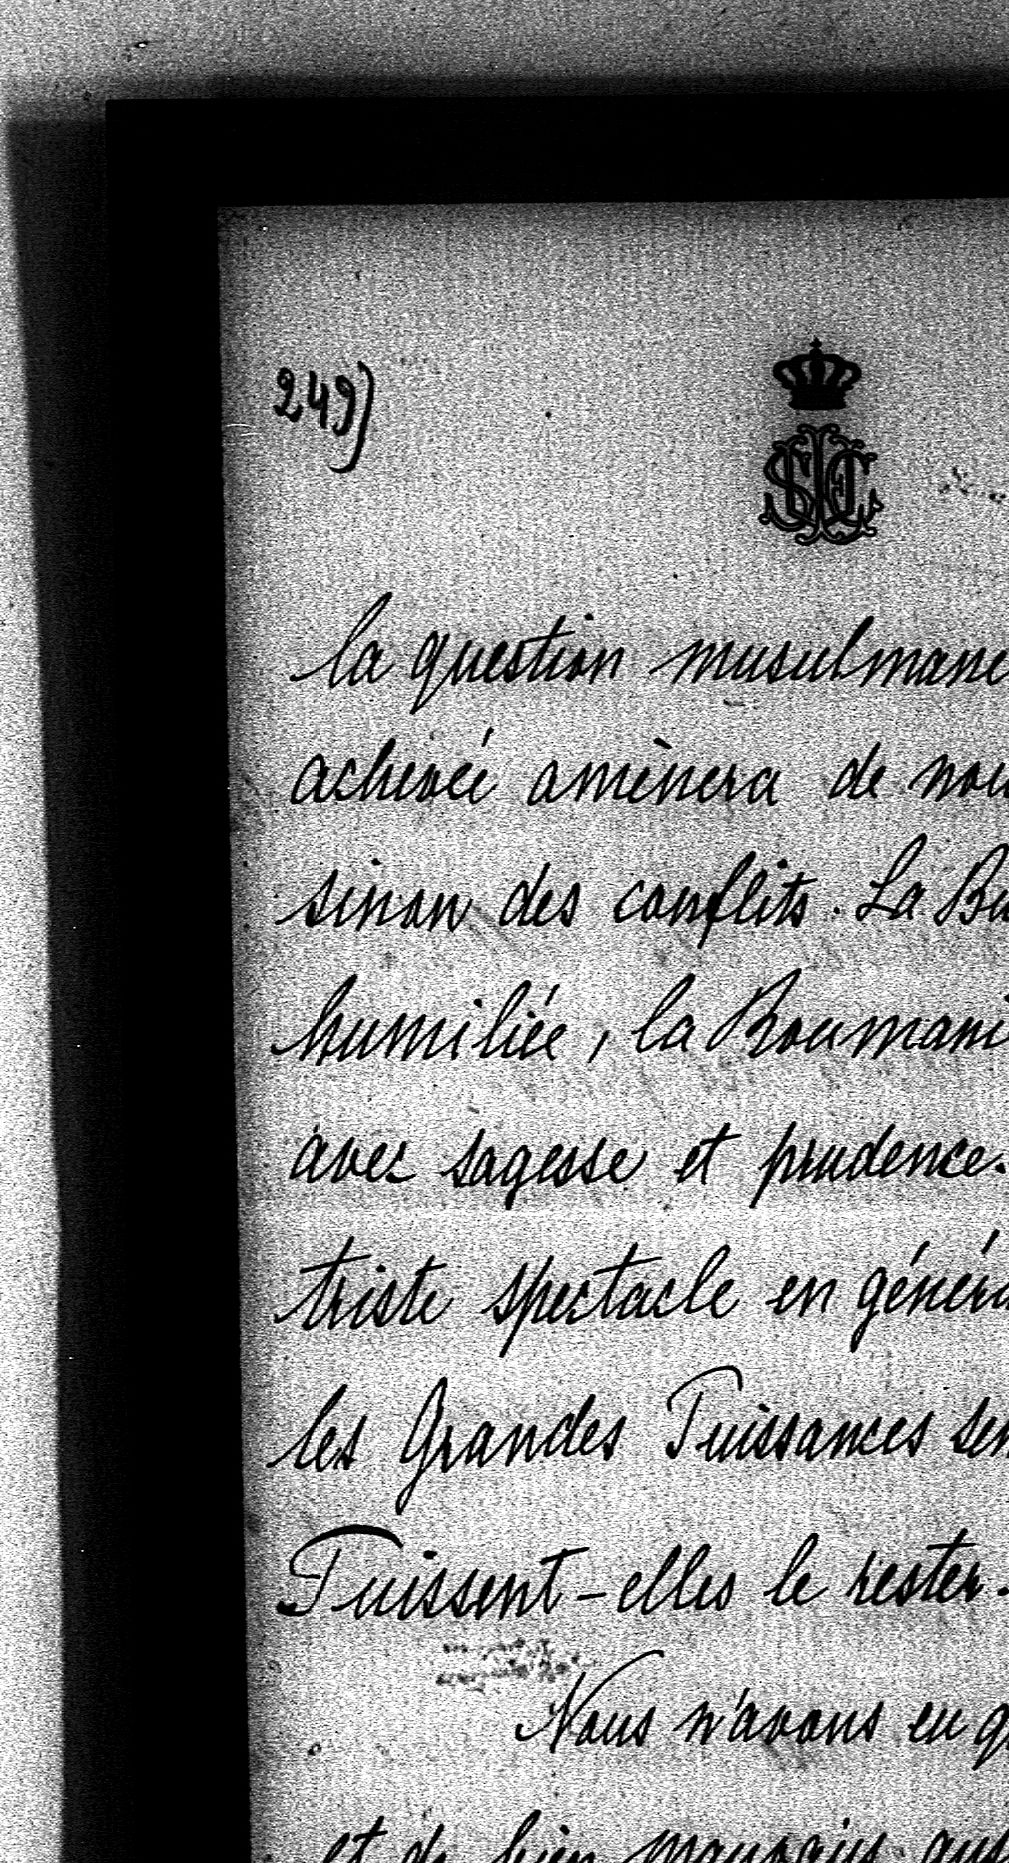 249)
la question musulmane
achevée amènera de nou
sinon des conflits. La Bu
humiliée, la Roumani
avec sagesse et prudence.
triste spectacle en généra
les Grandes Puissances sem
Puissent-elles le rester.
Nous n'avons eu q
et de bien mauvais aus